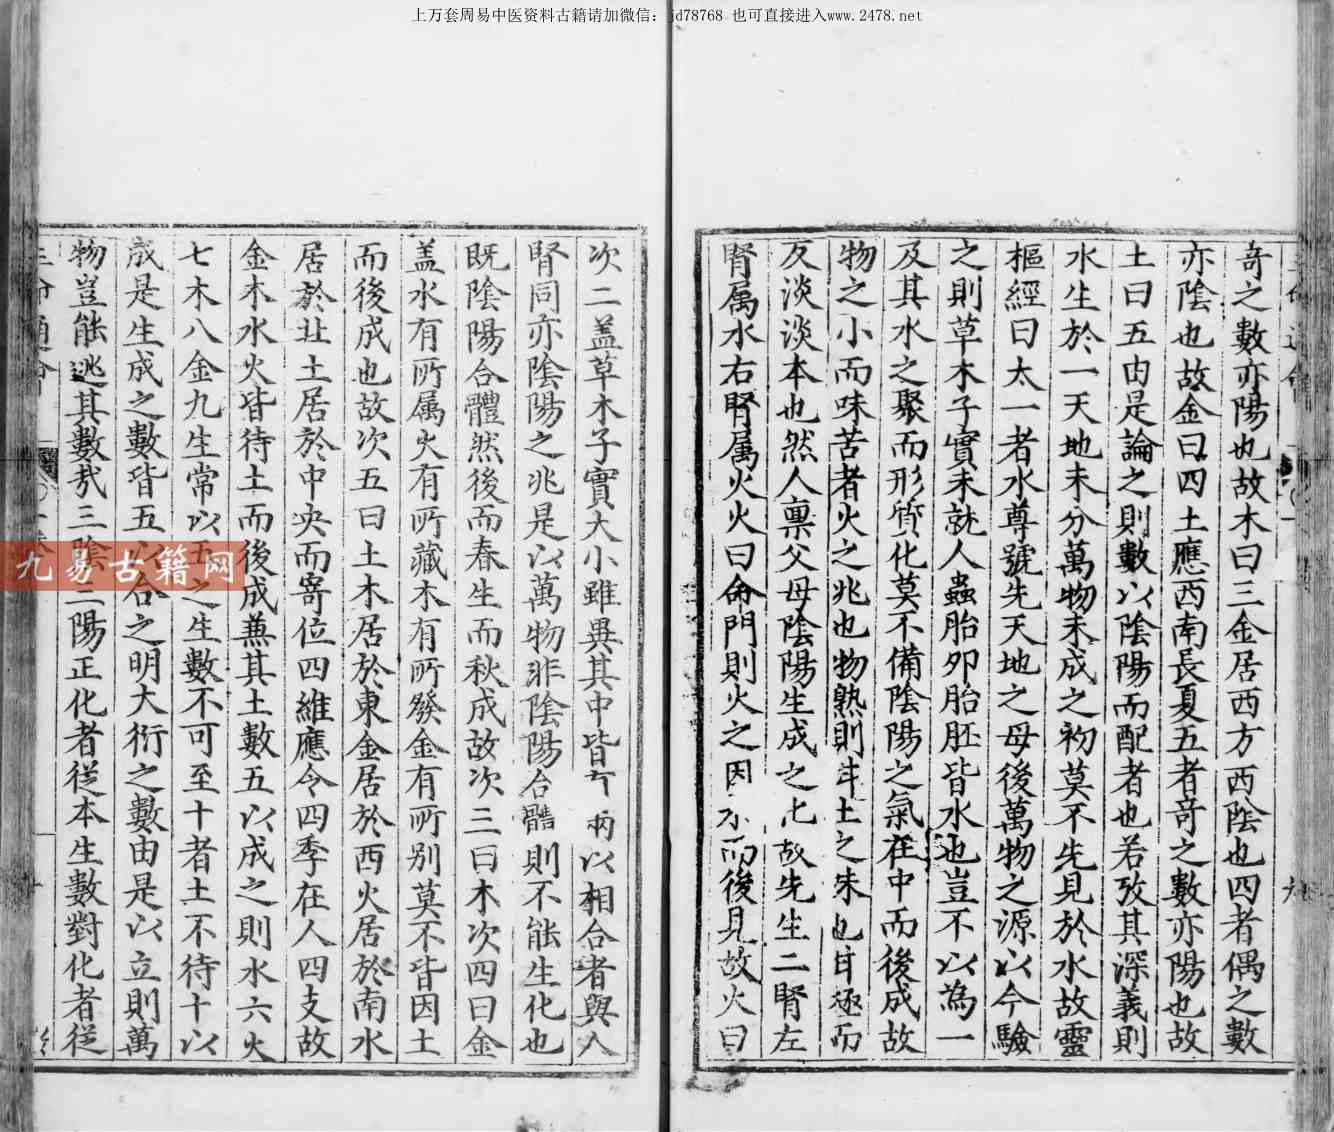 上万套周易中医资料古籍请加微信：jd78768 也可直接进入www.2478.net
奇之數亦陽也故木曰三金居西方西陰也四者偶之數
亦陰也故金曰四土應西南長夏五者奇之數亦陽也故
土曰五由是論之則數以陰陽而配者也若攷其深義則
水生於一天地未分萬物未成之初莫不先見於水故靈
樞經曰太一者水尊號先天地之母後萬物之源以今驗
之則草木子實未就人蟲胎卵胎胚皆水也豈不以為一
及其水之聚而形質化莫不備陰陽之氣在中而後成故
物之小而味苦者火之兆也物熟則甘土之味也甘極而
反淡淡本也然人稟父母陰陽生成之化故先生二腎左
腎属水右腎属火火曰命門則火之因水而後見故火曰
次二盖草木子實大小雖異其中皆有兩以相合者與人
腎同亦陰陽之兆是以萬物非陰陽合體則不能生化也
既陰陽合體然後而春生而秋成故次三曰木次四曰金
盖水有所属火有所藏木有所發金有所别莫不皆因土
而後成也故次五曰土木居於東金居於西火居於南水
居於北土居於中央而寄位四維應令四季在人四支故
金木水火皆待土而後成兼其土數五以成之則水六火
七木八金九生常以五之生數不可至十者土不待十以
成是生成之數皆五以合之明大衍之數由是以立則萬
物豈能逃其數㢤三陰三陽正化者從本生數對化者從
九易古籍网